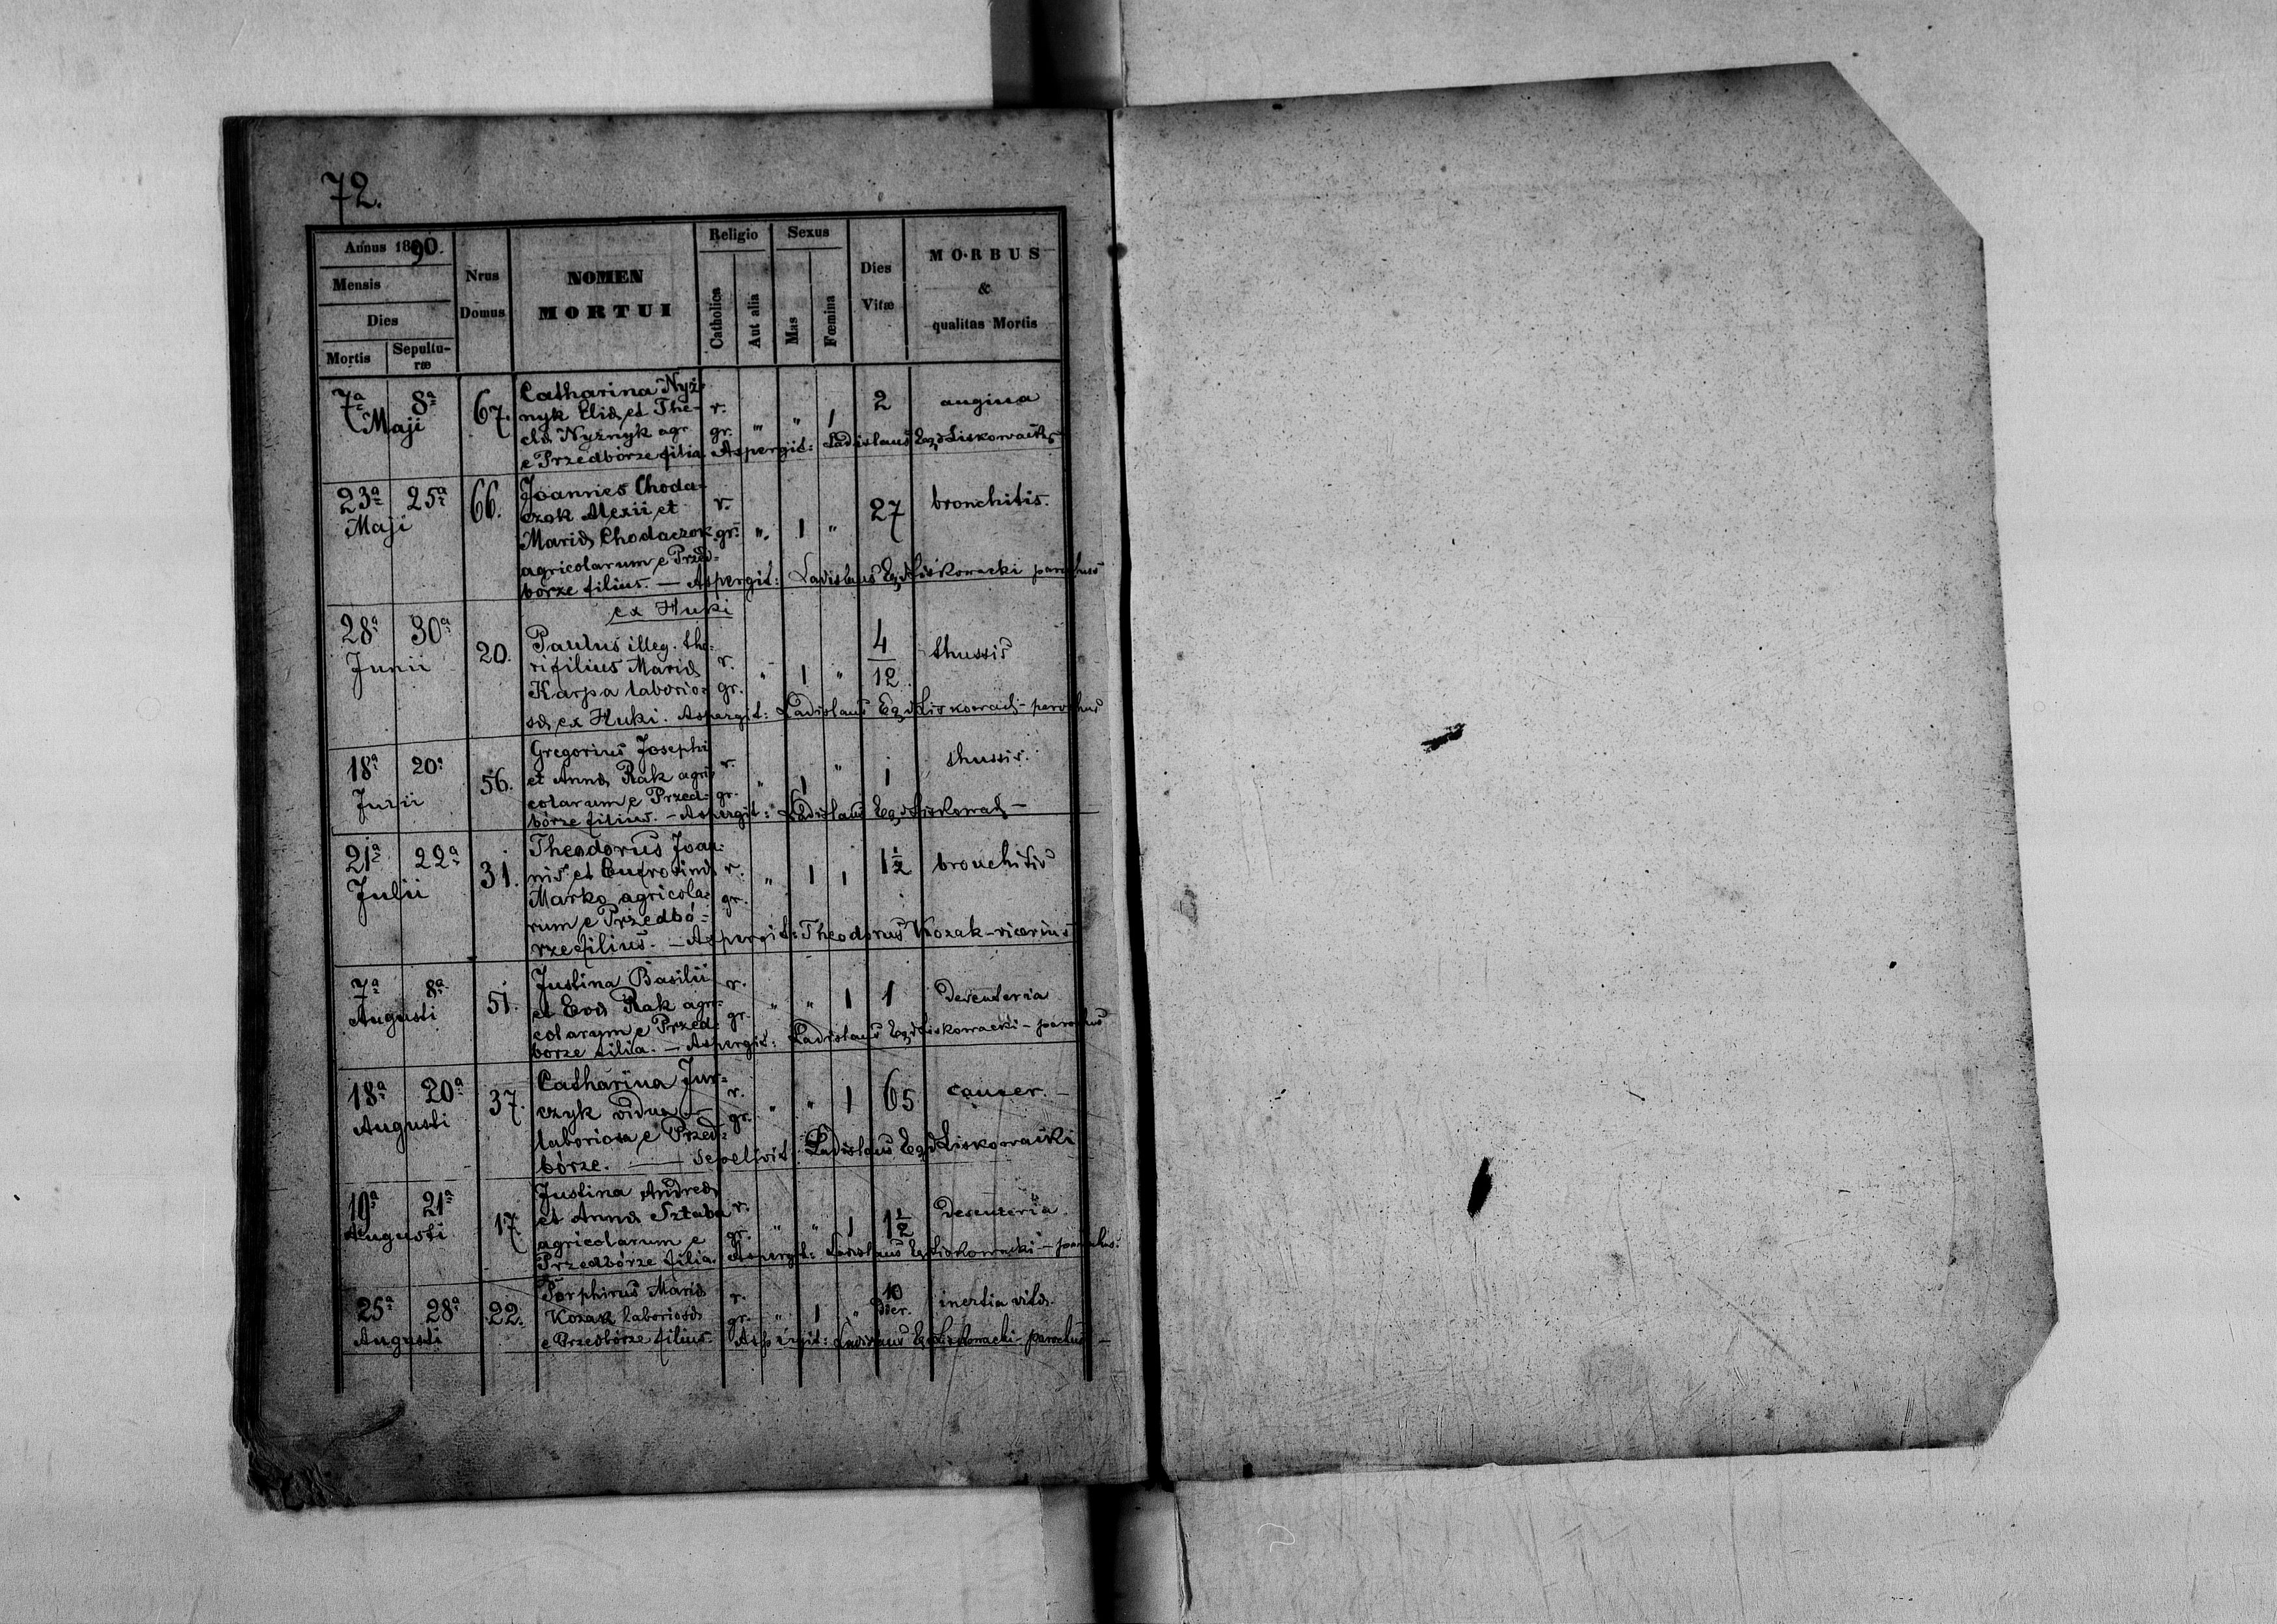 72.
Annus 1890.
Mensis
Dies
Mortis Sepultu-
ræ
Nrus
Domus
NOMEN
MORTUI
Religio
Catholica
Aut alia
Sexus
Mas
Fœmina
Dies
Vitæ
MORBUS
&
qualitas Mortis
7ª 8ª
Maji
67.
Catharina Nyż-
nyk Eliæ et The-
clæ Nyżnyk agr.
e Przedbórze filia. Aspergit: Ladislaus Eq. d Liskowacki
r.
gr. " " 1 2 angina
23ª 25ª
Maji
66.
Joannes Choda-
czok Alexii et
Mariæ Chodaczok
agricolarum e Przed-
bórze filius. — Aspergit: Ladislaus Eq. d Liskowacki parochus
r.
gr. " 1 " 27 bronchitis.
ex Huki
28ª 30ª
Junii
20.
Paulus illeg. tho-
ri filius Mariæ
Karpa laborio-
sæ ex Huki. Aspergit: Ladislaus Eq. d Liskowacki - parochus
r.
gr. " 1 " 4/12 thussis
18ª 20ª
Junii
56.
Gregorius Josephi
et Annæ Rak agri-
colarum e Przed-
bórze filius. — Aspergit: Ladislaus Eq. d Liskowacki —
r.
gr. " 1 " 1 thussis.
21ª 22ª
Julii
31.
Theodorus Joan-
nis et Eufrosinæ
Marko agricola-
rum e Przedbó-
rze filius. — Aspergit: Theodorus Kozak - vicarius
r.
gr. " 1 1 1½ bronchitis
7ª 8ª
Augusti
51.
Justina Basilii
et Evæ Rak agri-
colarum e Przed-
bórze filia. — Aspergit: Ladislaus Eq. d Liskowacki - parochus
r.
gr. " " 1 1 desenteria
18ª 20ª
Augusti
37.
Catharina Jur-
czyk vidua —
laboriosa e Przed-
bórze. — sepelivit: Ladislaus Eq. d Liskowacki
r.
gr. " " 1 65 cancer. —
19ª 21ª
Augusti
17.
Justina Andreæ
et Annæ Sztaba
agricolarum e
Przedbórze filia. Aspergit: Ladislaus Eq. d Liskowacki - parochus.
r.
gr. " " 1 1½ desenteria
25ª 28ª
Augusti
22.
Porphirus Mariæ
Kozak laboriosæ
e Przedbórze filius. Aspergit: Ladislaus Eq. d Liskowacki - parochus —
r.
gr. " 1 " 10
dier. inertia vitæ.